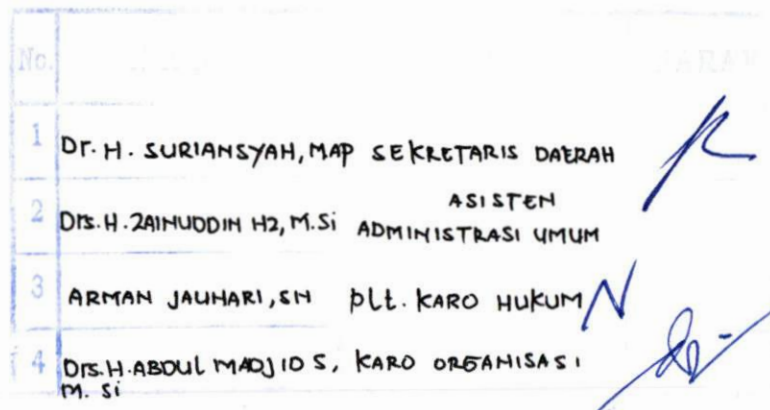 No. PARAF
1 Dr. H. SURIANSYAH, MAP SEKRETARIS DAERAH
2 Drs. H. ZAINUDDIN HZ, M.Si ASISTEN
ADMINISTRASI UMUM
3 ARMAN JAUHARI, SH plt. KARO HUKUM
4 Drs. H. ABDUL MADJID S, KARO ORGANISASI
M. Si